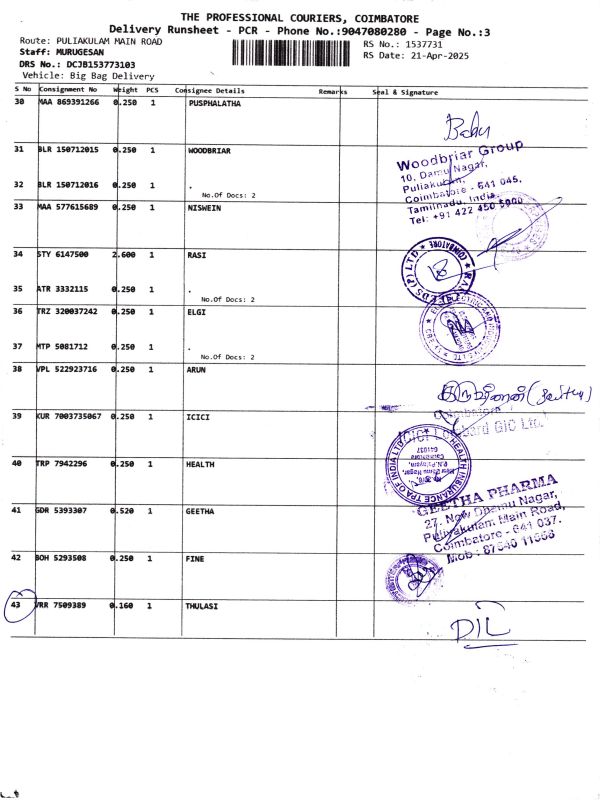 THE PROFESSIONAL COURIERS, COIMBATORE
Delivery Runsheet - PCR - Phone No.:9047080280 - Page No.:3
Route: PULIAKULAM MAIN ROAD
RS No.: 1537731
Staff: MURUGESAN
RS Date: 21-Apr-2025
DRS No.: DCJB153773103
Vehicle: Big Bag Delivery
S No Consignment No Weight PCS Consignee Details Remarks Seal & Signature
30 MAA 869391266 0.250 1 PUSPHALATHA
31 BLR 150712015 0.250 1 WOODBRIAR
Woodbriar Group
10, Damu Nagar,
Puliakulam,
Coimbatore - 641 045,
Tamilnadu, India.
Tel: +91 422 450 5000
32 BLR 150712016 0.250 1 .
No.Of Docs: 2
33 MAA 577615689 0.250 1 NISWEIN
34 STY 6147500 2.600 1 RASI
35 ATR 3332115 0.250 1 .
No.Of Docs: 2
36 TRZ 320037242 0.250 1 ELGI
37 MTP 5081712 0.250 1 .
No.Of Docs: 2
38 VPL 522923716 0.250 1 ARUN
39 KUR 7003735067 0.250 1 ICICI
Coimbatore
ICICI Lombard GIC Ltd
40 TRP 7942296 0.250 1 HEALTH
HEALTH INSURANCE TPA OF INDIA LTD
41 GDR 5393307 0.520 1 GEETHA
GEETHA PHARMA
27, New Dhamu Nagar,
Puliyakulam Main Road,
Coimbatore - 641 037.
Mob : 87540 11566
42 BOH 5293508 0.250 1 FINE
43 VRR 7509389 0.160 1 THULASI
DIL